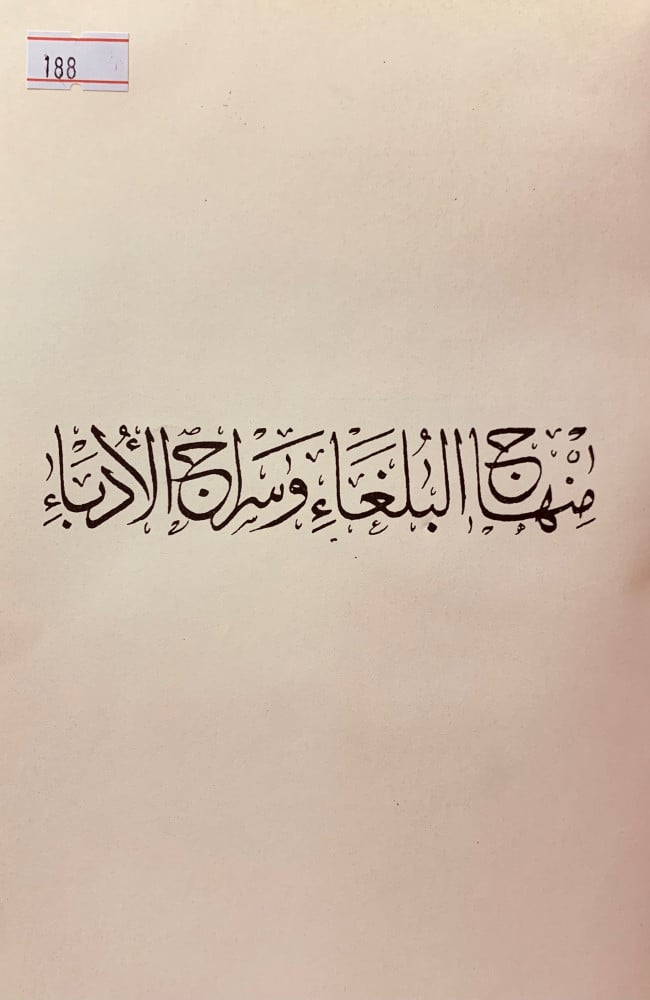 188
مِنْهَاجُ البُلَغَاءِ وَسَرَاجُ الأُدَبَاءِ